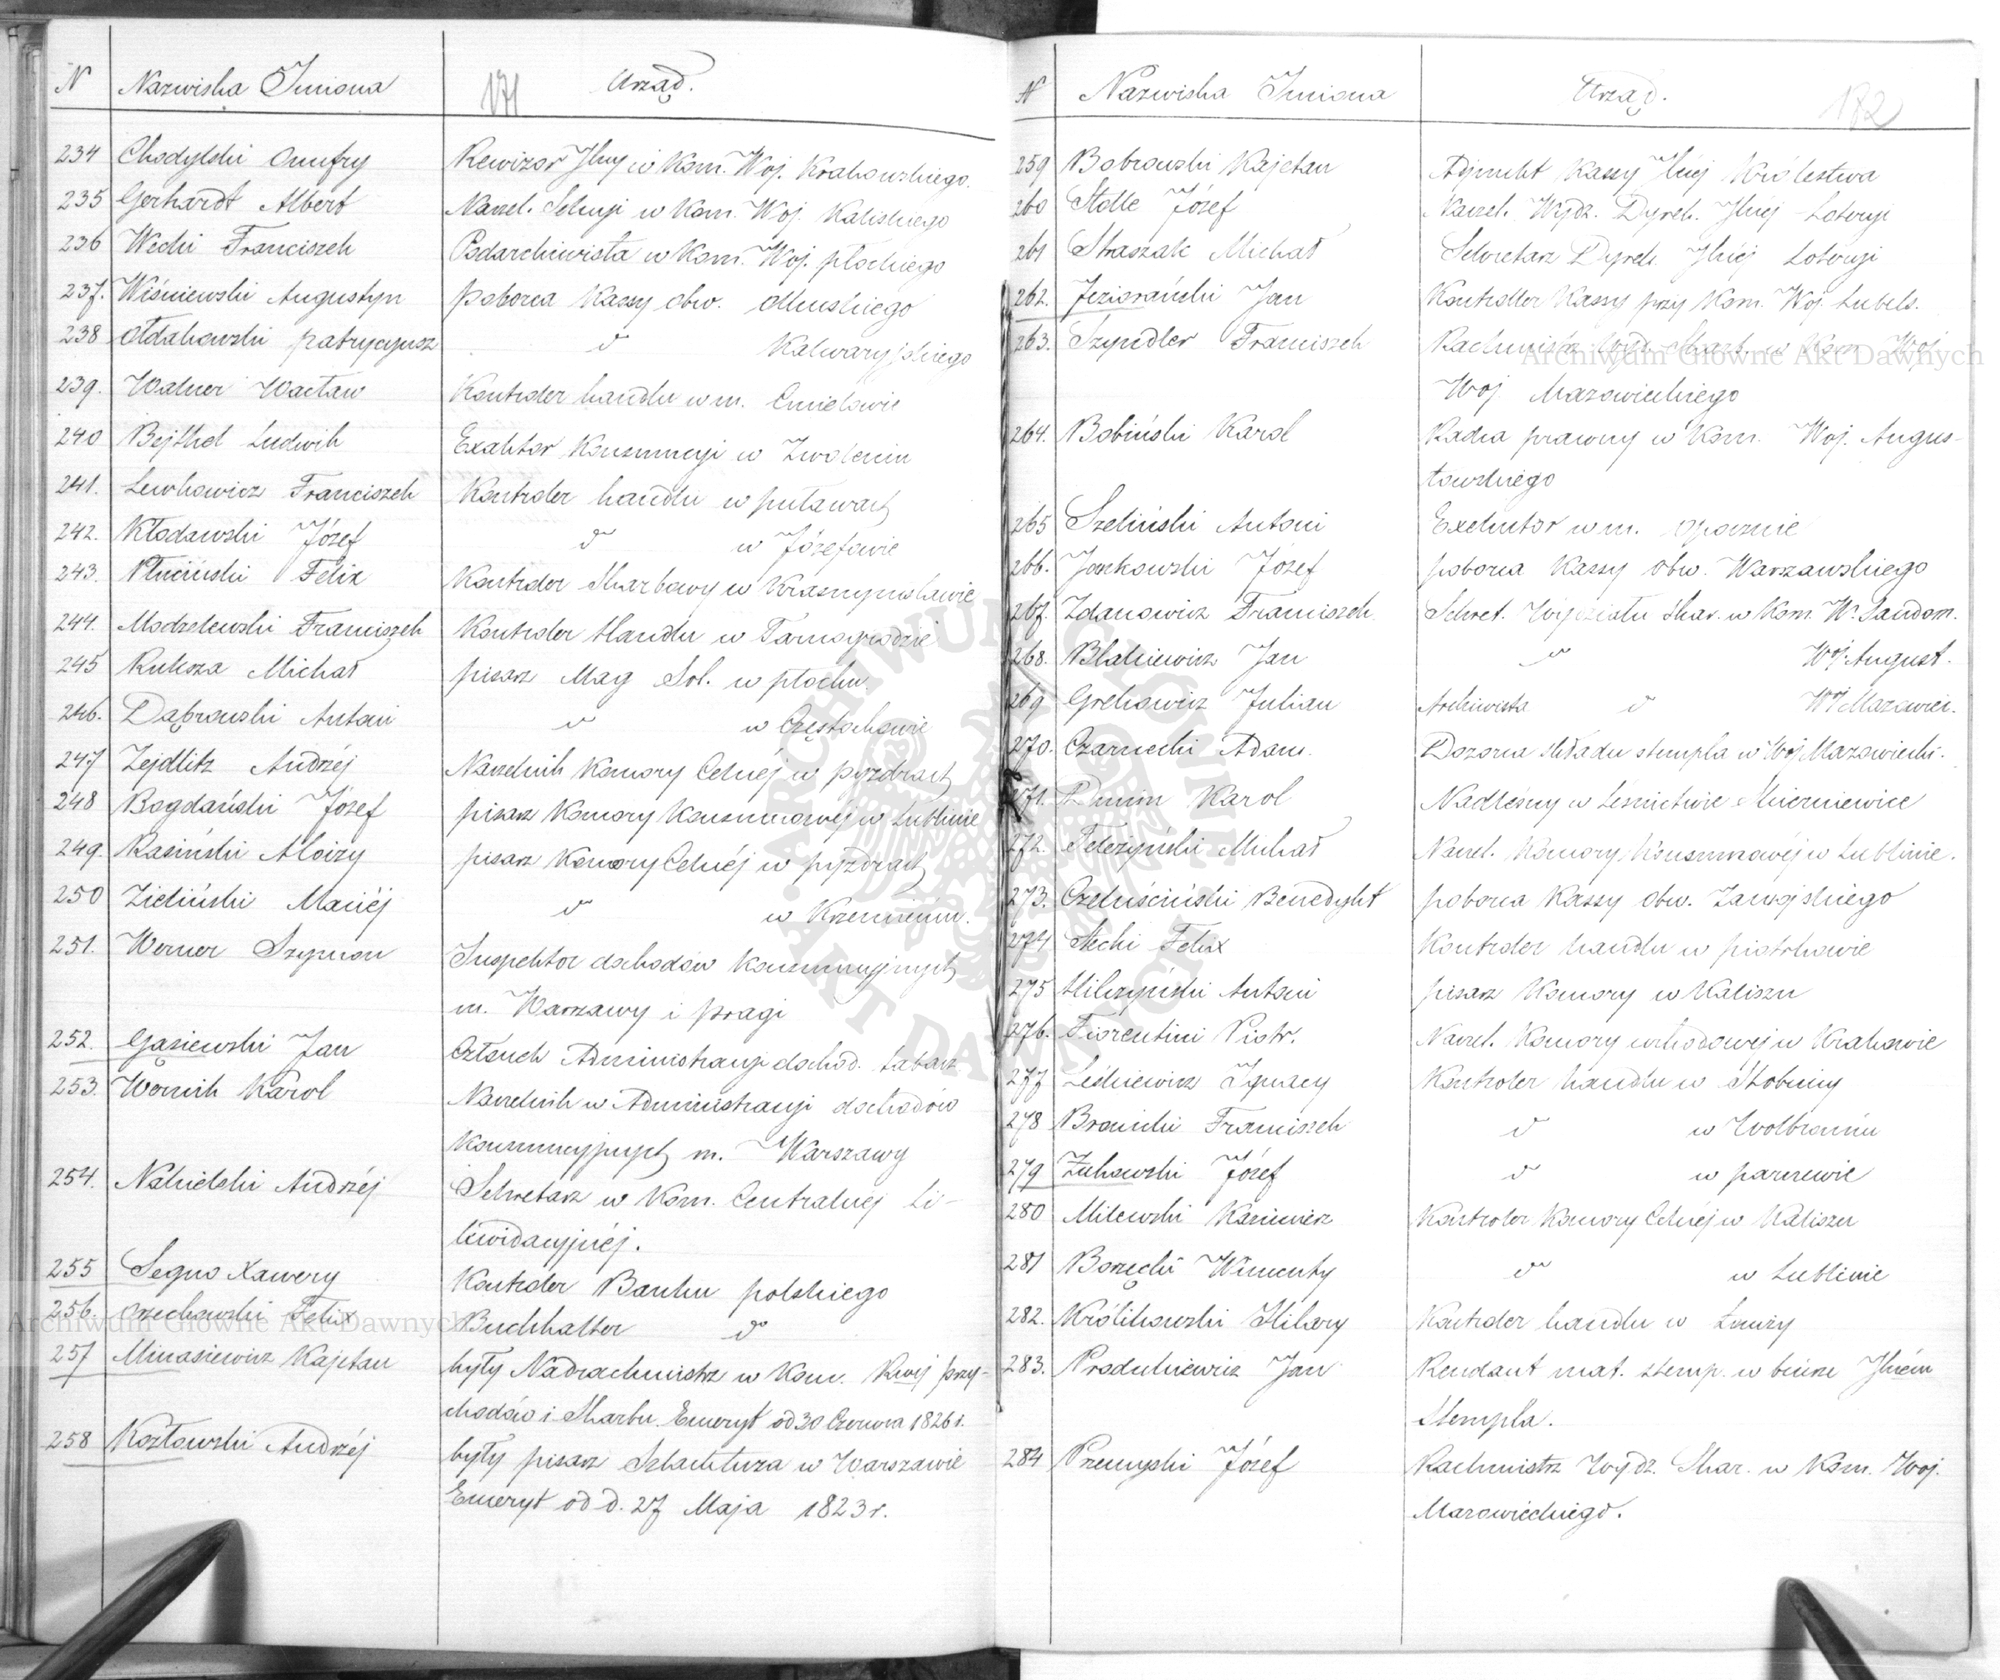 N Nazwiska Imiona 171 Urząd.
234 Chodylski Onufry Rewizor Jlny w Kom. Woj. Krakowskiego.
235 Gerhardt Albert Naczel. Sekcyi w Kom. Woj. Kaliskiego
236 Wecki Franciszek Podarchiwista w Kom. Woj. płockiego
237. Wiśniewski Augustyn poborca Kassy obw. Olkuskiego
238 Ołdakowski patrycyusz d Kalwaryjskiego
239. Walner Wacław Kontroler handlu w m. Cmielowie
240 Bejthel Ludwik Exaktor Konsumcyi w Zwoleniu
241. Lewkowicz Franciszek Kontroler handlu w puławach
242. Kłodawski Józef d w Józefowie
243. Płuciński Felix Kontroler Skarbowy w Krasnymstawie
244. Modzelewski Franciszek Kontroler Handlu w Tarnogrodzie
245 Ruksza Michał pisarz Mag Sol. w płocku.
246. Dąbrowski Antoni d w Częstochowie
247 Zejdlitz Andrzéj Naczelnik Komory Celnéj w pyzdrach
248 Bogdański Józef pisarz Komory Konsumowéj w Lublinie
249. Rasiński Aloizy pisarz Komory Celnéj w pyzdrach
250 Zieliński Maciéj d w Krzemieniu.
251. Werner Szymon Inspektor dochodów Konsumcyjnych
m. Warszawy i pragi
252. Gąsiewski Jan Członek Administracyi dochod. tabacz.
253. Wernik Karol Naczelnik w Administracyi dochodów
Konsumcyjnych m. Warszawy
254. Nakielski Andrzéj Sekretarz w Kom. Centralnej Li-
kwidacyjnéj.
255 Segno Xawery Kontroler Banku polskiego
256. Orzechowski Felix Buchhalter d
257 Minasiewicz Kajetan były Nadrachmistrz w Kom. Rwej przy-
chodów i Skarbu. Emeryt od 30 Czerwca 1826 r.
258 Kozłowski Andrzéj były pisarz Szlachtuza w Warszawie
Emeryt od d. 27 Maja 1823 r.
N Nazwiska Imiona Urząd. 172
259 Bobrowski Kajetan Adjunkt Kassy Jłnéj Królestwa
260 Stolle Józef Naczel. Wydz. Dyrek. Jlnej Loteryi
261 Straszak Michał Sekretarz Dyrek. Jlnéj Loteryi
262. Jeziorański Jan Kontroller Kassy przy Kom. Woj. Lubels.
263. Szyndler Franciszek Rachmistrz Wydz. Skarb. w Kom. Woj.
Woj. Mazowieckiego
264. Bobiński Karol Radca prawny w Kom. Woj. Augus-
towskiego
265 Szeliński Antoni Exekutor w m. Opocznie
266. Jankowski Józef poborca Kassy obw. Warszawskiego
267. Zdanowicz Franciszek Sekret. Wydziału Skar. w Kom. W. Sandom.
268. Blakiewicz Jan d Woj. August.
269 Grekowicz Julian Archiwista d Woj Mazowiec.
270. Czarnecki Adam Dozorca składu stempla w Woj Mazowiecki.
271. Dunin Karol Nadleśny w Leśnictwie Skierniewice
272. Teleżyński Michał Naczel. Komory Konsumowéj w Lublinie.
273. Czeluściński Benedykt poborca Kassy Obw. Zamojskiego
274 Stecki Felix Kontroler handlu w piotrkowie
275 Hilczyński Antoni pisarz Komory w Kaliszu
276. Fiorentini Piotr. Naczel. Komory wchodowej w Krakowie
277 Leśkiewicz Ignacy Kontroler handlu w Stobnicy
278 Branicki Franciszek d w Wolbromiu
279 Żukowski Józef d w parczewie
280 Milewski Kazimierz Kontroler Komory Celnéj w Kaliszu
281 Borzęcki Wincenty d w Lublinie
282. Królikowski Hilary Kontroler handlu w Łomży
283. Produkiewicz Jan Rendant mat. stemp. w biurze Jlném
Stempla.
284 Przemyski Józef Rachmistrz Wydz. Skar. w Kom. Woj.
Mazowieckiego.
Archiwum Główne Akt Dawnych
Archiwum Główne Akt Dawnych
ARCHIWUM GŁÓWNE AKT DAWNYCH